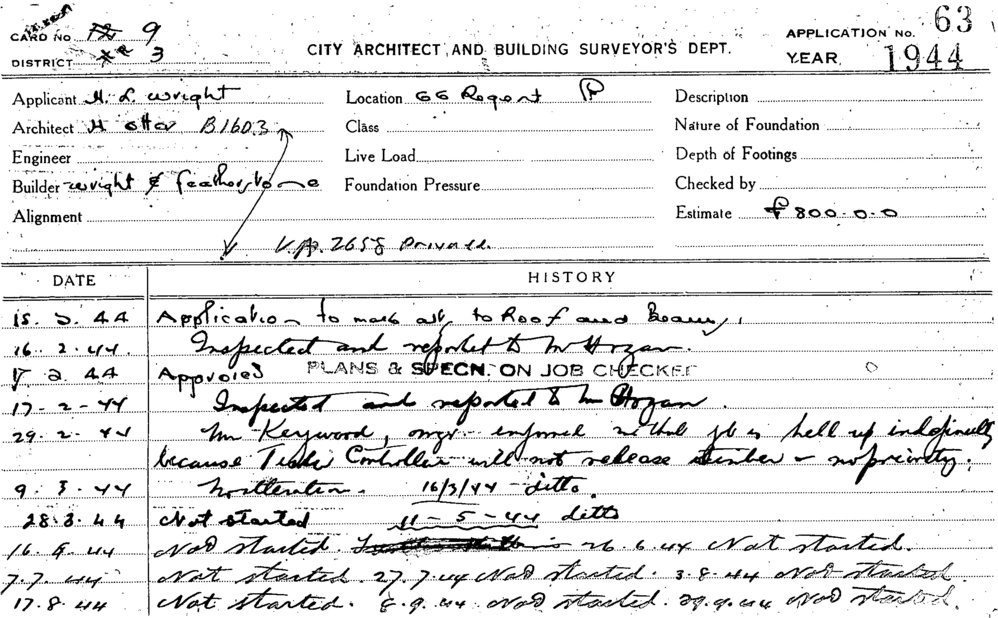 CARD NO. 9
CITY ARCHITECT AND BUILDING SURVEYOR'S DEPT.
APPLICATION No. 63
DISTRICT 3
YEAR 1944
Applicant H. L. Wright
Location 66 Regent
Description
Architect H B1603
Class
Nature of Foundation
Engineer
Live Load
Depth of Footings
Builder Wright &
Foundation Pressure
Checked by
Alignment
Estimate £800.0.0
V.P. 2658 Private
DATE HISTORY
15. 2. 44 Application to make to Roof and Beams.
16. 2. 44. Inspected and reported to Mr Hogan.
2. 44 Approved PLANS & SPECN. ON JOB CHECKED
17-2-44 Inspected and reported to Mr Hogan.
29. 2. 44 Mr Keywood, informed job is held up indefinitely
because Controller will not release timber - no priority.
9. 3. 44 No alteration. 16/3/44 - ditto.
28.3.44 Not started 11-5-44 ditto
16. 44 Not started. 26.6.44 Not started.
7.7.44 Not started. 27.7.44 Not started. 3.8.44 Not started.
17.8.44 Not started. 8.9.44 Not started. 29.9.44 Not started.